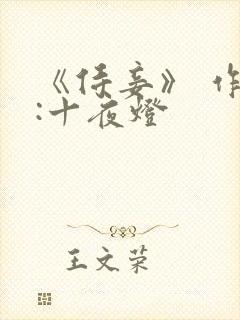 《侍妾》 作
:十夜燈
王文荣